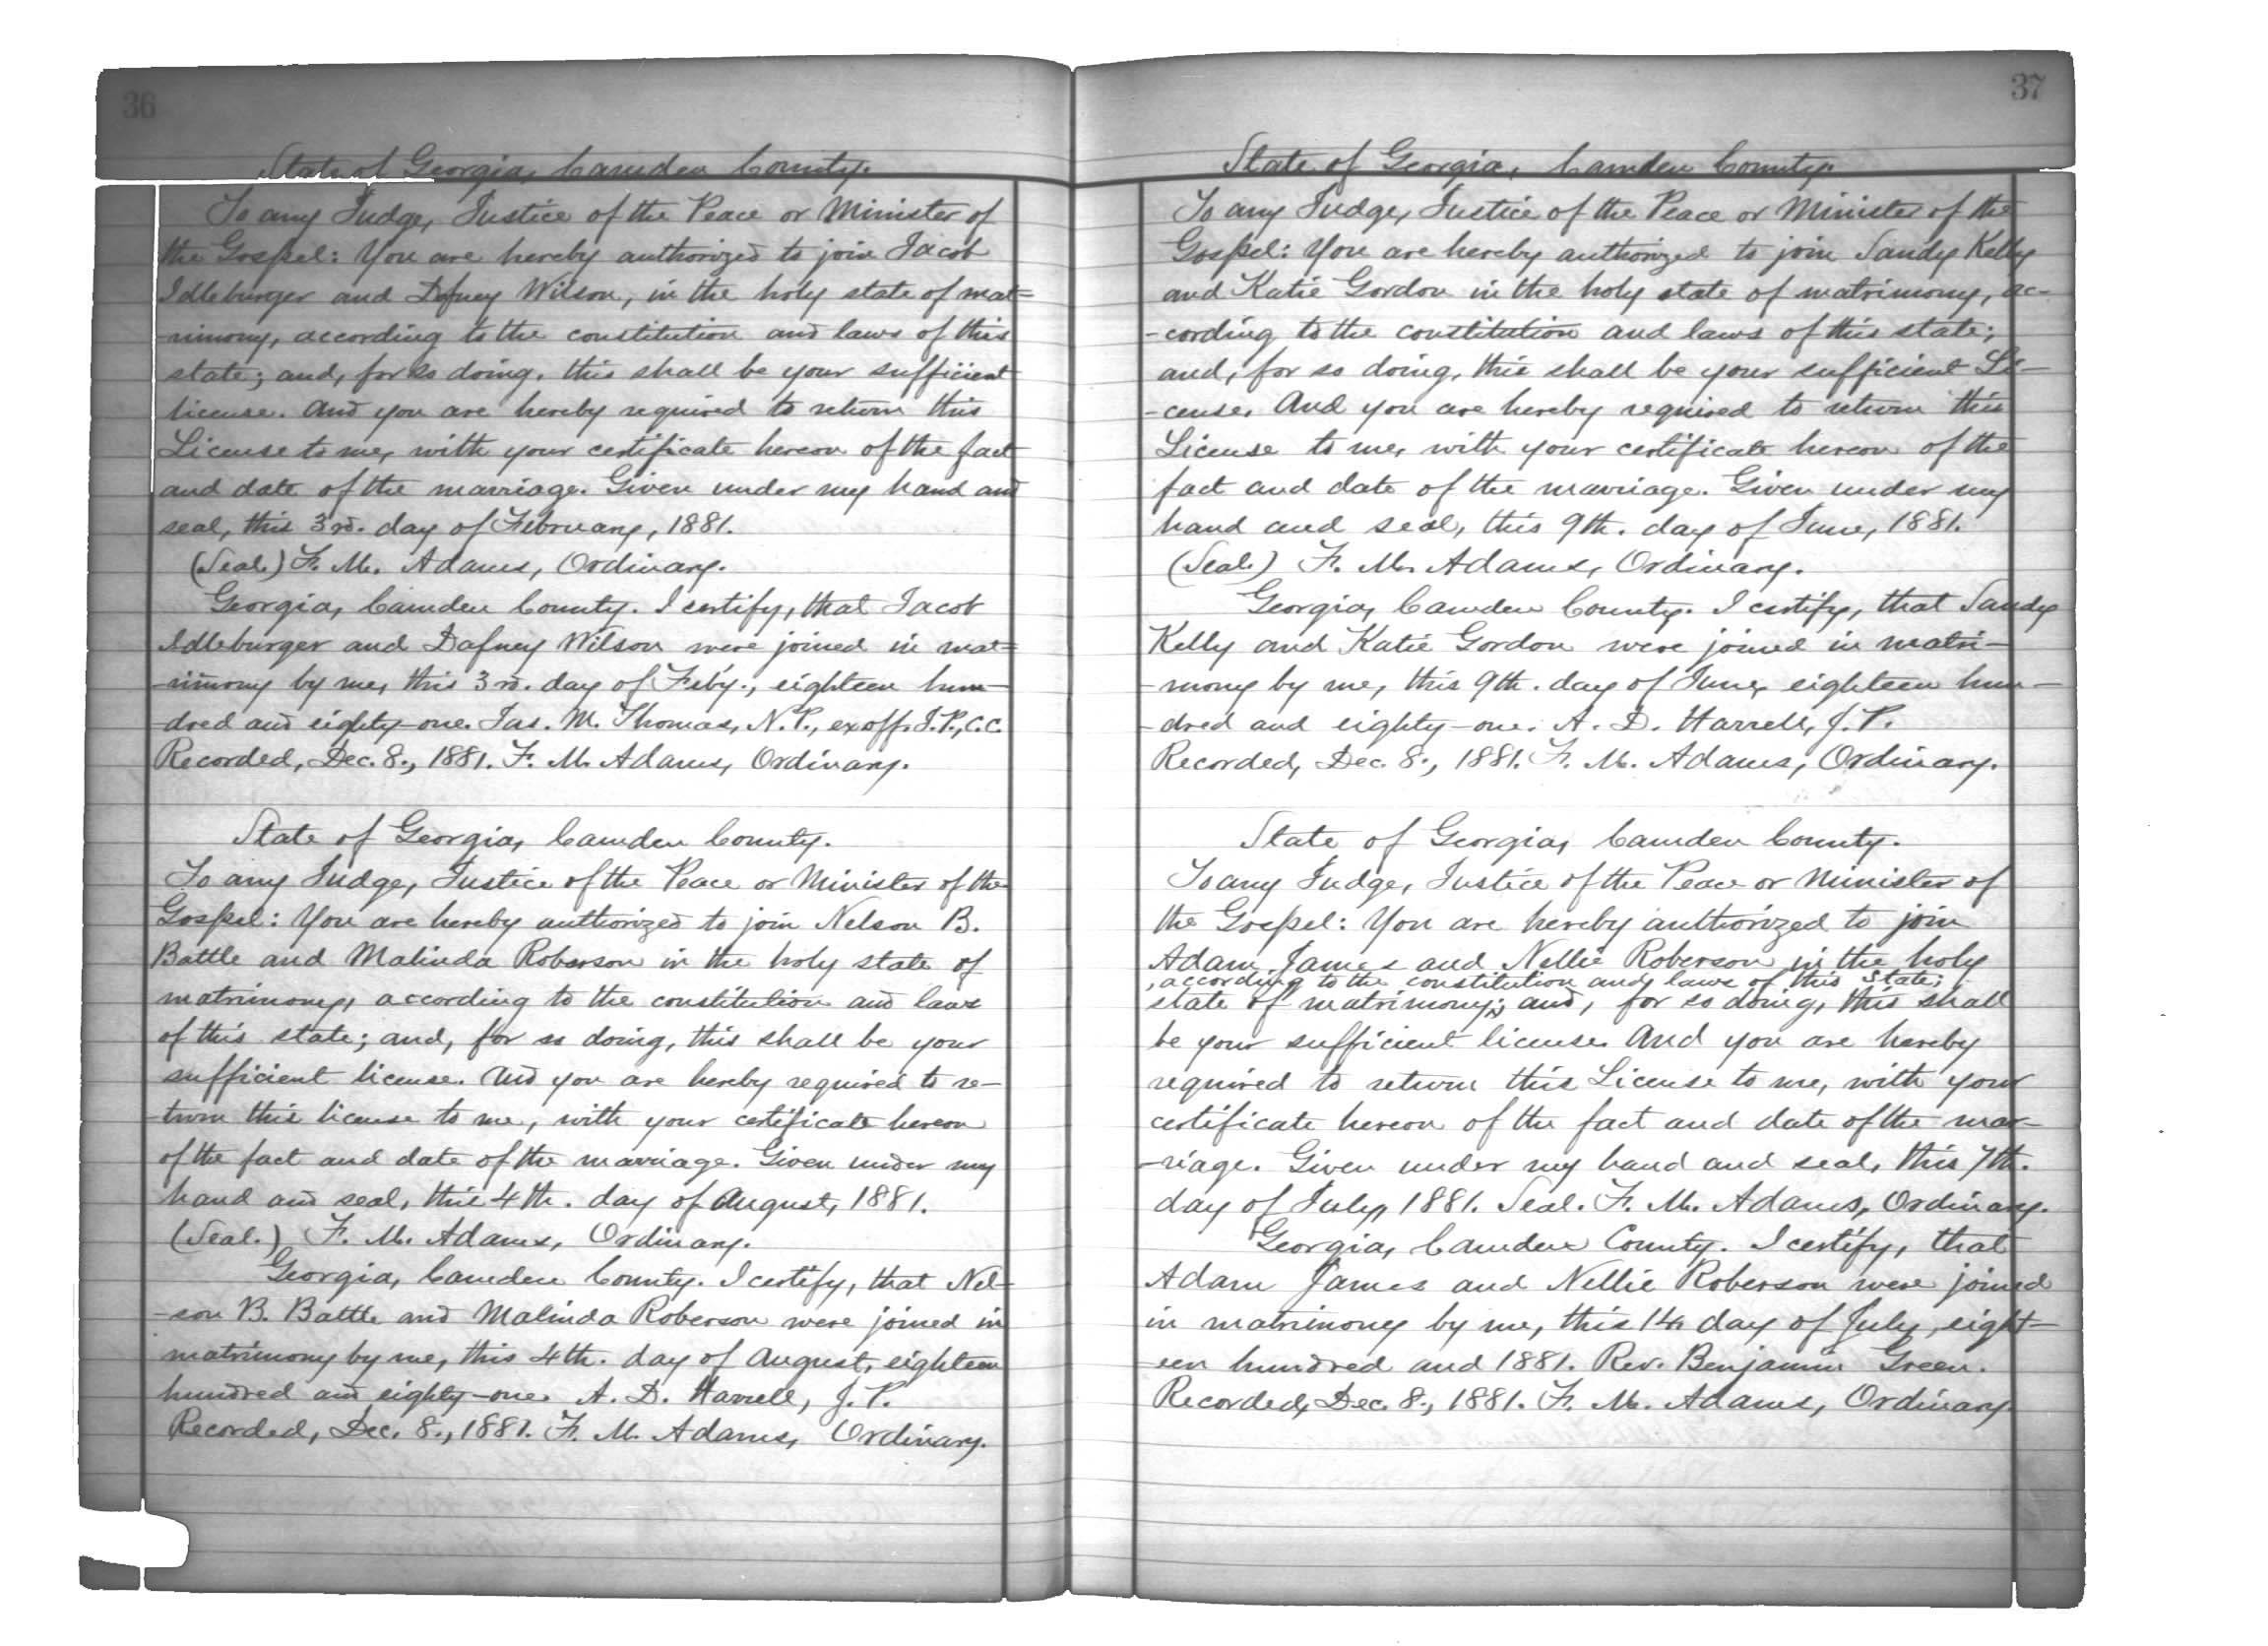 36
State of Georgia, Camden County.
To any Judge, Justice of the Peace or Minister of
the Gospel: You are hereby authorized to join Jacob
Idleburger and Dafney Wilson, in the holy state of mat=
rimony, according to the constitution and laws of this
state; and, for so doing, this shall be your sufficient
license. And you are hereby required to return this
License to me, with your certificate hereon of the fact
and date of the marriage. Given under my hand and
seal, this 3rd. day of February, 1881.
(Seal.) F. M. Adams, Ordinary.
Georgia, Camden County. I certify, that Jacob
Idleburger and Dafney Wilson were joined in mat=
-rimony by me, this 3rd. day of Feb'y., eighteen hun-
-dred and eighty-one. Jas. M. Thomas, N.P., ex off. J.P., C.C.
Recorded, Dec. 8., 1881. F. M. Adams, Ordinary.
State of Georgia, Camden County.
To any Judge, Justice of the Peace or Minister of the
Gospel: You are hereby authorized to join Nelson B.
Battle and Malinda Roberson in the holy state of
matrimony, according to the constitution and laws
of this state; and, for so doing, this shall be your
sufficient license. And you are hereby required to re-
-turn this license to me, with your certificate hereon
of the fact and date of the marriage. Given under my
hand and seal, this 4th. day of August, 1881.
(Seal.) F. M. Adams, Ordinary.
Georgia, Camden County. I certify, that Nel-
-son B. Battle and Malinda Roberson were joined in
matrimony by me, this 4th. day of August, eighteen
hundred and eighty-one. A. D. Harrell, J. P.
Recorded, Dec. 8., 1881. F. M. Adams, Ordinary.
37
State of Georgia, Camden County.
To any Judge, Justice of the Peace or Minister of the
Gospel: You are hereby authorized to join Sandy Kelly
and Katie Gordon in the holy state of matrimony, ac-
-cording to the constitution and laws of this state;
and, for so doing, this shall be your sufficient Li-
-cense. And you are hereby required to return this
License to me, with your certificate hereon of the
fact and date of the marriage. Given under my
hand and seal, this 9th. day of June, 1881.
(Seal.) F. M. Adams, Ordinary.
Georgia, Camden County. I certify, that Sandy
Kelly and Katie Gordon were joined in matri-
-mony by me, this 9th. day of June, eighteen hun-
-dred and eighty-one. A. D. Harrell, J. P.
Recorded, Dec. 8., 1881. F. M. Adams, Ordinary.
State of Georgia, Camden County.
To any Judge, Justice of the Peace or Minister of
the Gospel: You are hereby authorized to join
Adam James and Nellie Roberson in the holy
, according to the constitution and laws of this State;
state of matrimony; and, for so doing, this shall
be your sufficient license. And you are hereby
required to return this License to me, with your
certificate hereon of the fact and date of the mar-
-riage. Given under my hand and seal, this 7th.
day of July, 1881. Seal. F. M. Adams, Ordinary.
Georgia, Camden County. I certify, that
Adam James and Nellie Roberson were joined
in matrimony by me, this 14 day of July, eight-
-een hundred and 1881. Rev. Benjamin Green.
Recorded, Dec. 8., 1881. F. M. Adams, Ordinary.